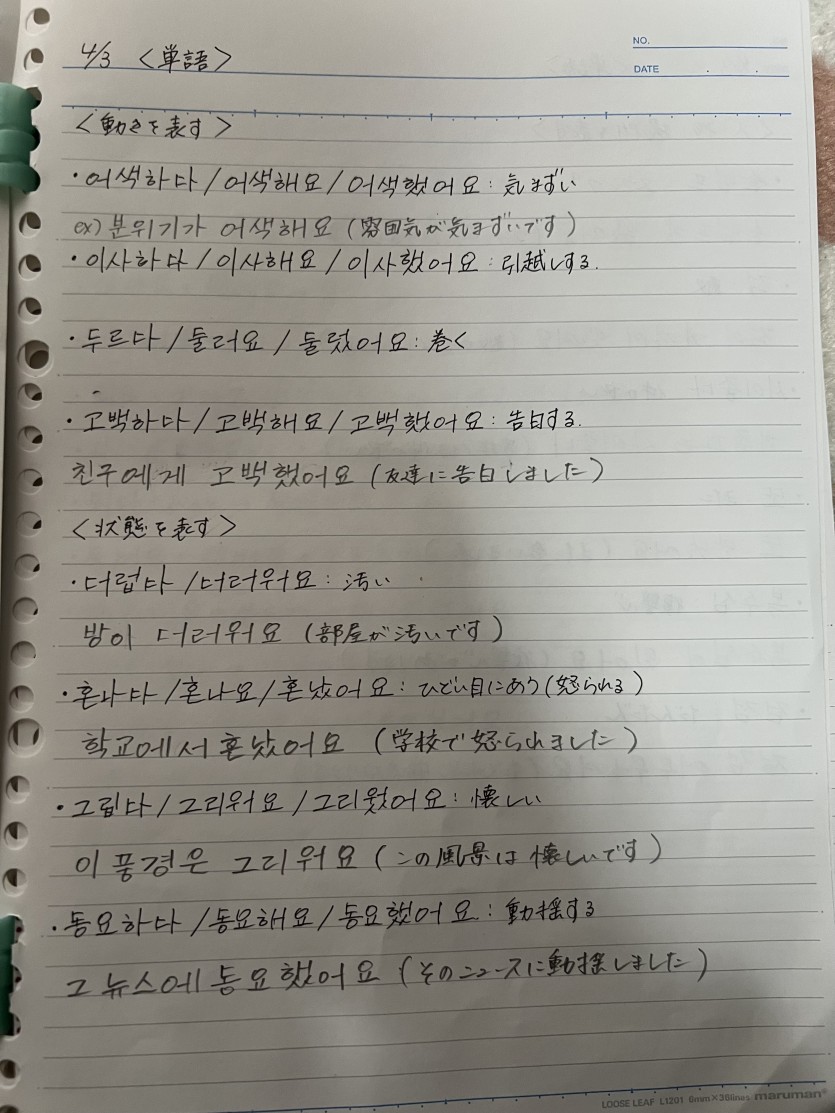 NO.
4/3 <単語>
DATE
<動きを表す>
・어색하다/어색해요/어색했어요: 気まずい
ex) 분위기가 어색해요 (雰囲気が気まずいです)
・이사하다/이사해요/이사했어요: 引越しする.
・두르다/둘러요/둘렀어요: 巻く
・고백하다/고백해요/고백했어요: 告白する.
친구에게 고백했어요 (友達に告白しました)
<状態を表す>
・더럽다/더러워요: 汚い
방이 더러워요 (部屋が汚いです)
・혼나다/혼나요/혼났어요: ひどい目にあう(怒られる)
학교에서 혼났어요 (学校で怒られました)
・그립다/그리워요/그리웠어요: 懐しい
이 풍경은 그리워요 (この風景は懐しいです)
・동요하다/동요해요/동요했어요: 動揺する
그 뉴스에 동요했어요 (そのニュースに動揺しました)
LOOSE LEAF L1201 6mm×36lines maruman